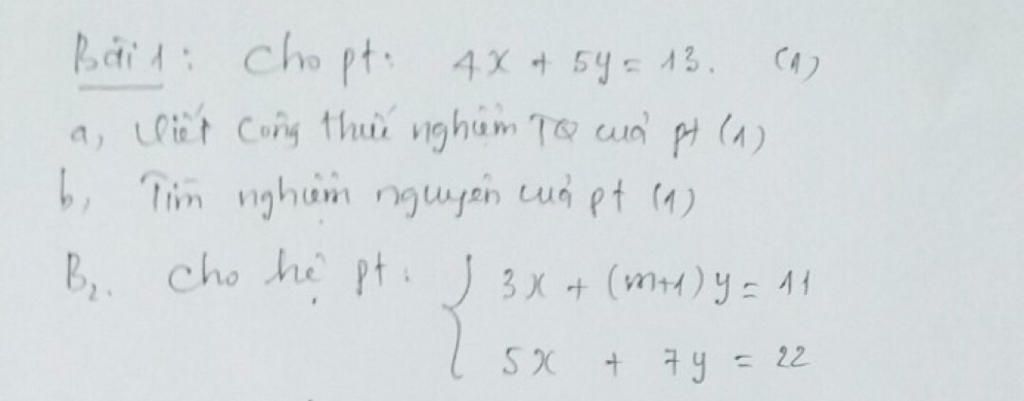 Bài 1: Cho pt: 4x + 5y = 13. (1)
a, Viết công thức nghiệm TQ của pt (1)
b, Tìm nghiệm nguyên của pt (1)
B2. Cho hệ pt: { 3x + (m+1)y = 11
5x + 7y = 22